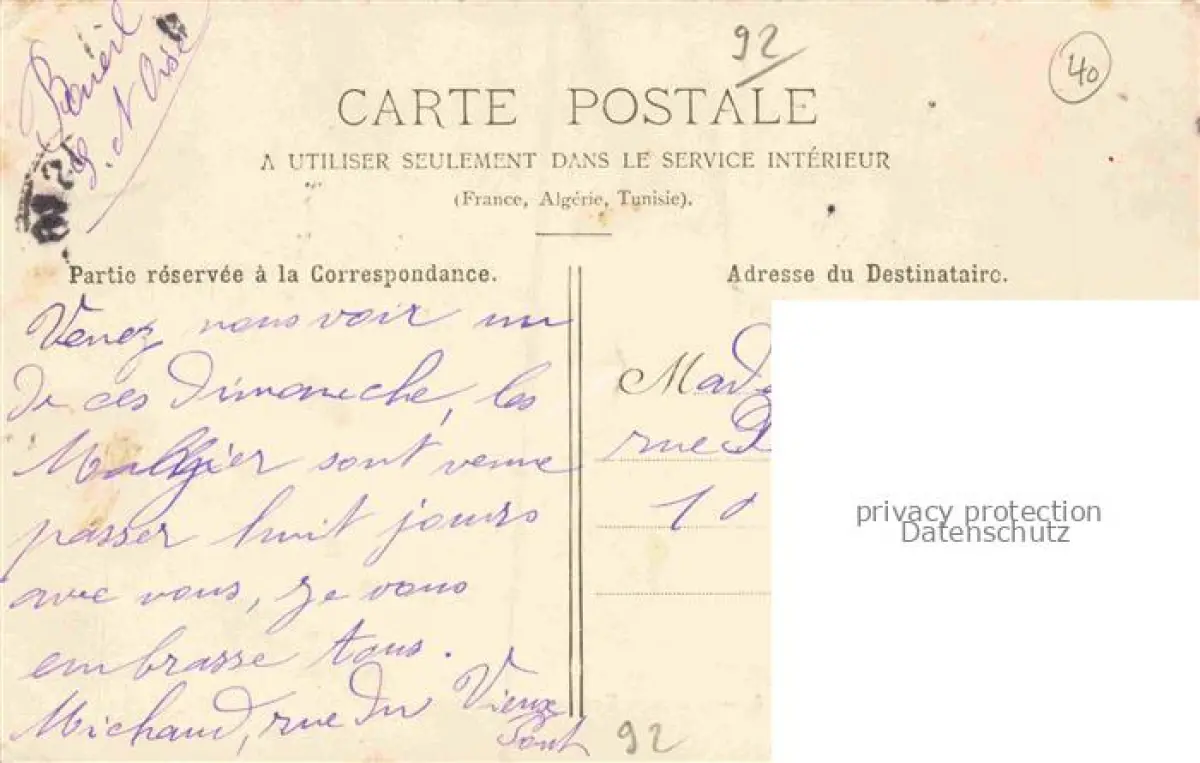 92
40
Rueil
S. N Oise
CARTE POSTALE
A UTILISER SEULEMENT DANS LE SERVICE INTÉRIEUR
(France, Algérie, Tunisie).
Partie réservée à la Correspondance.
Venez nous voir un
de ces Dimaneche, les
sont venue
passer huit jours
avec vous, je vous
embrasse tous.
Michaud, rue du Vieux
Pont
92
Adresse du Destinataire.
Mad
rue
10
privacy protection
Datenschutz